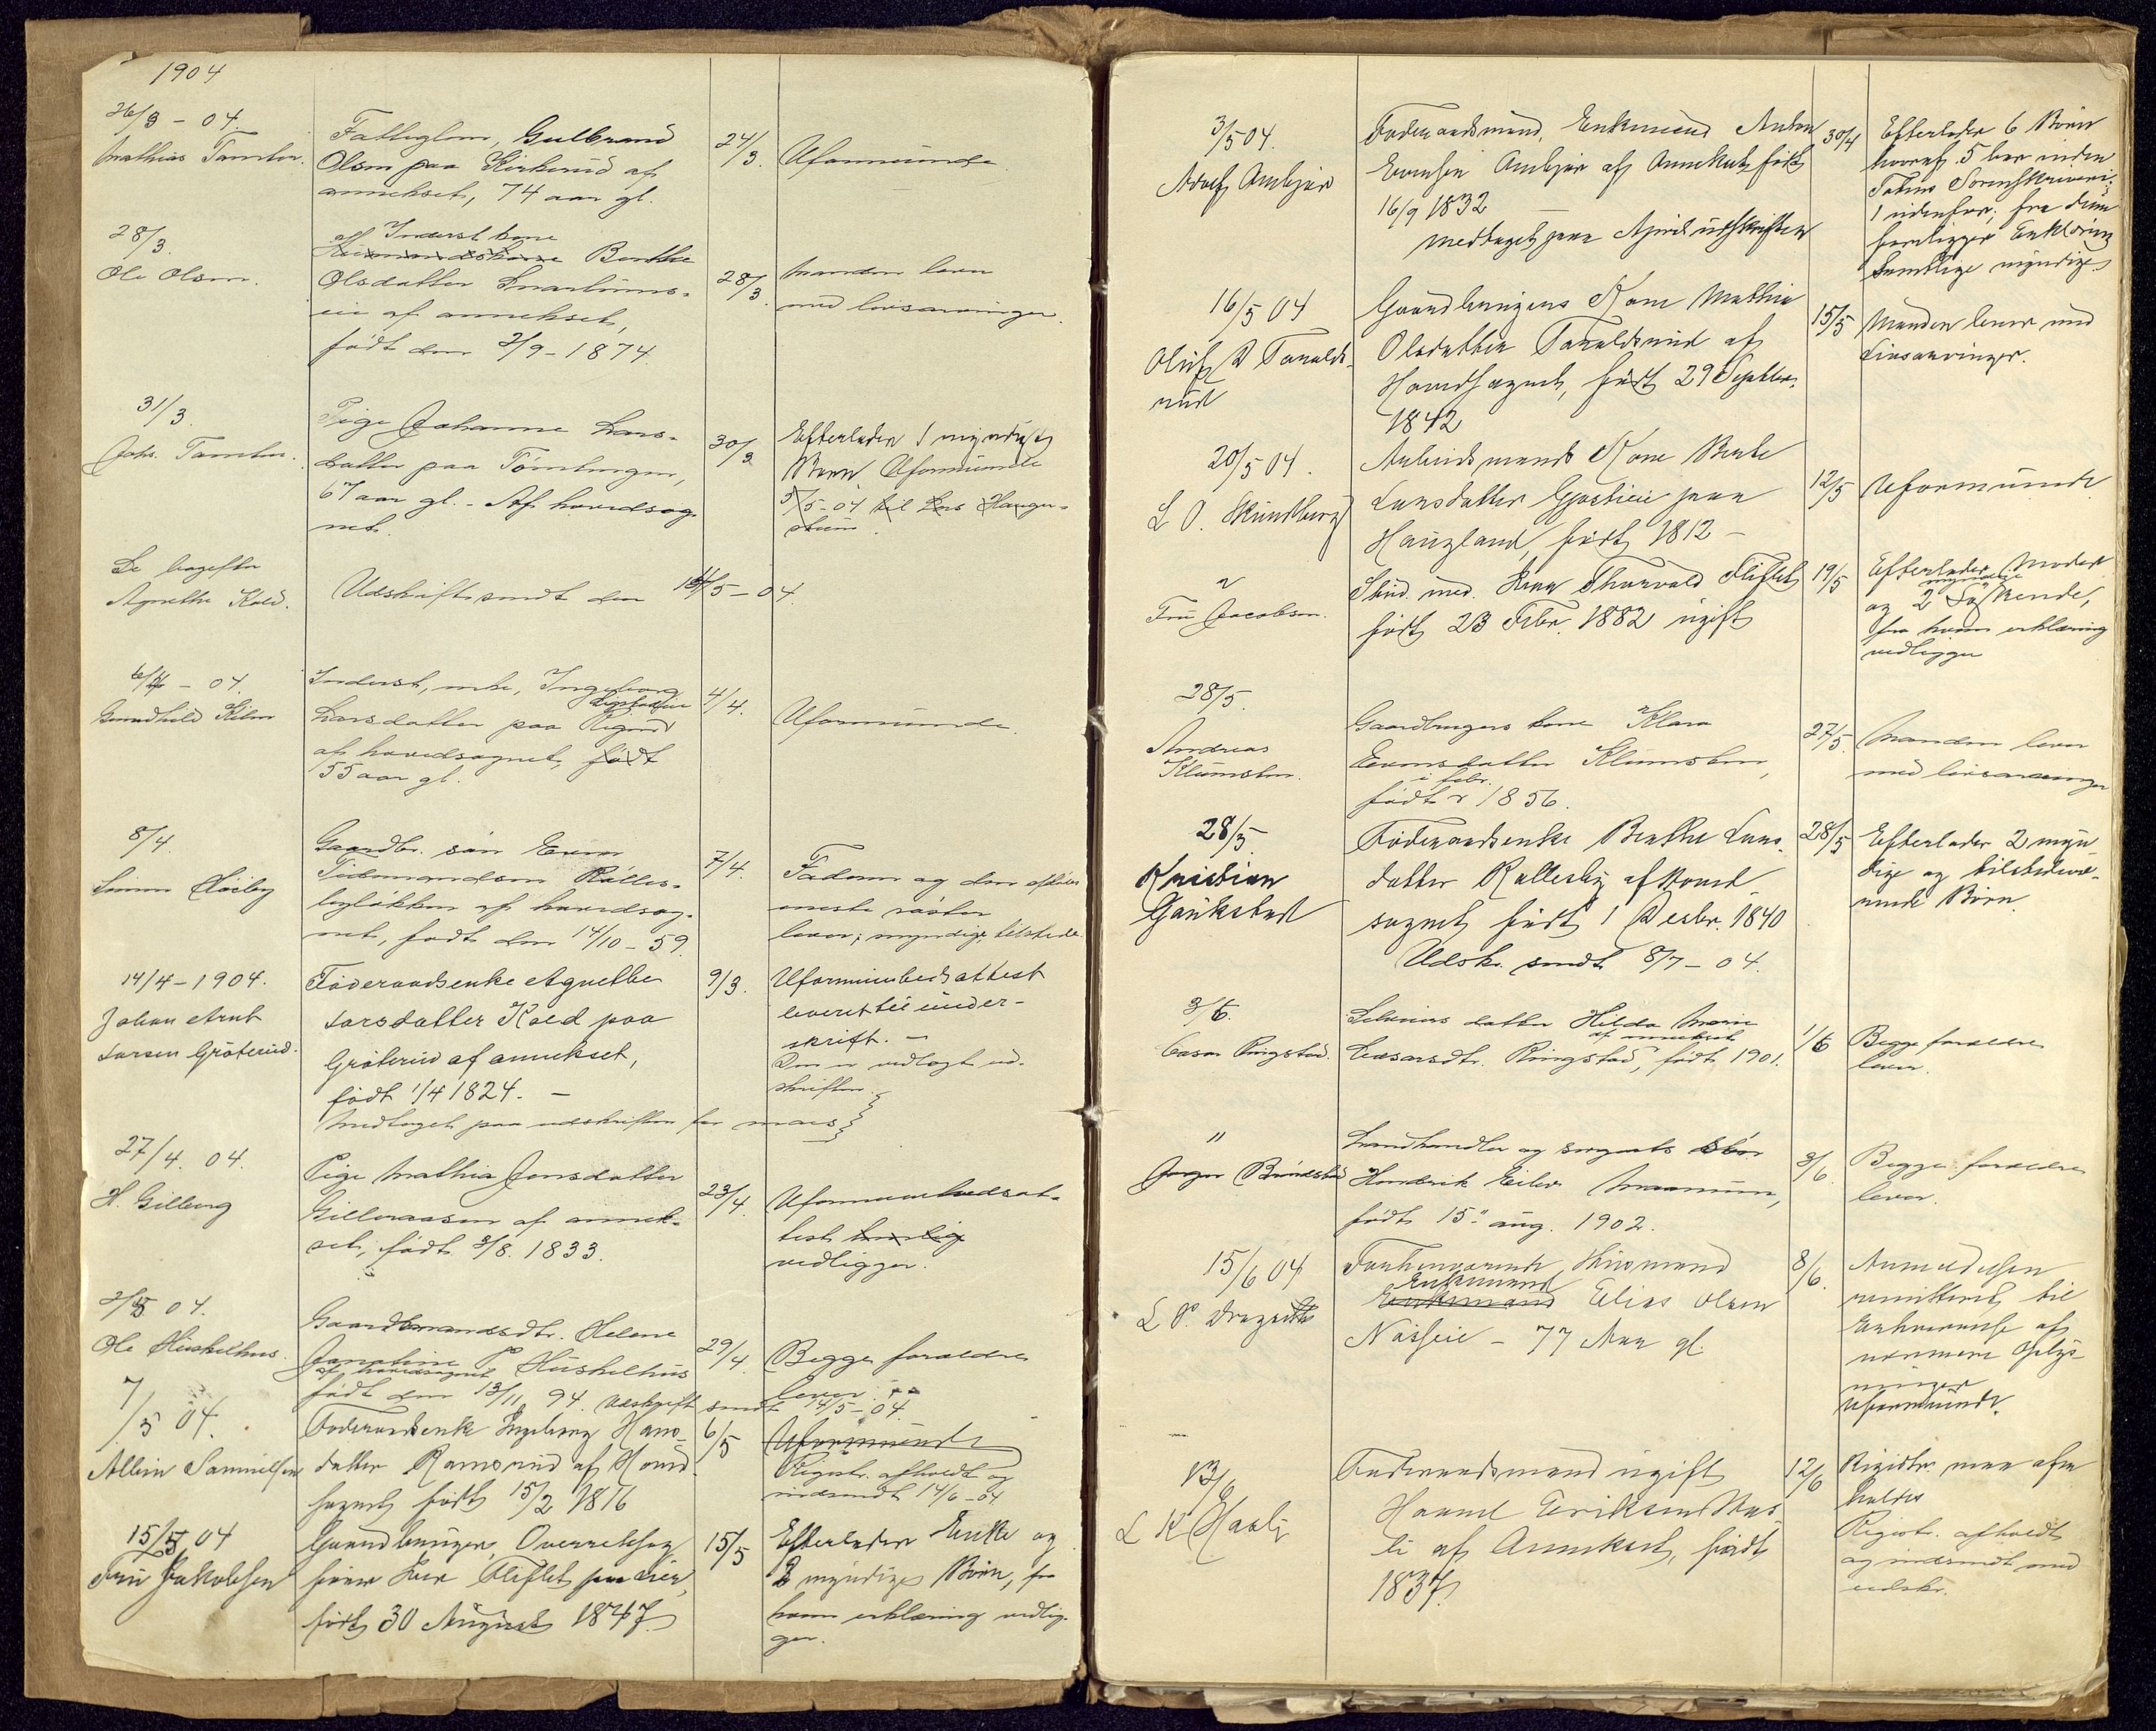 1904
26/3 - 04
Mathias Tømten.
Fattiglem, Gulbrand
Olsen paa Kirkerud af
annekset, 74 aar gl.
24/3.
Uformuende
28/3.
Ole Olsen.
Inderst kone
Husmandskone Berthe
Olsdatter
eie af annekset,
født den 2/9 - 1874.
28/3.
Manden lever
med livsarvinger.
31/3.
Johs. Tømten.
Pige Johanne Lars-
datter paa Tømbergen,
67 aar gl. - Af hovedsog-
net.
30/3
Efterlader 1 myndigt
Barn Uformuende
5/5-04 til Lars Hanger-
De bagefter
Agnethe Kold.
Udskrift sendt den 14/5 - 04.
6/4 - 04.
Gunhild Kihn
Inderst, enke, Ingeborg
Larsdatter paa Rigstad
af hovedsognet, født
55 aar gl.
4/4.
Uformuende.
8/4.
Simen Hoiby
Gaardbr. søn Even
Tidemandsen Kølles-
byløkken af hovedsog-
net, født den 14/10 - 59.
7/4.
Faderen og den afdødes
eneste søster
lever; myndig, tilstede.
14/4 - 1904.
Johan Arnt
Larsen Gröterud.
Föderaadsenke Agnethe
Larsdatter Kold paa
Gröterud af annekset,
født 1/4 1824. -
Medtaget paa udskriften for mars
9/3.
Uformuenhedsattest
leveret til under-
skrift. -
Den er vedlagt ud-
skriften.
27/4. 04.
H. Gilberg
Pige Mathia Jensdatter
Gilleraasen af annek-
set, født 3/8. 1833.
23/4.
Uformuenhedsat-
test
vedligger.
2/5 04.
Ole Huskelhus.
Gaardmandsdtr. Helene
Huskelhus
af hovedsognet
født den 13/11 94. Udskrift sendt 14/5 - 04.
29/4.
Begge forældre
lever.
7/5 04.
Albin Samuelsen
Föderaadsenke Ingeborg Hans-
datter Ramsrud af Hoved-
sognet født 15/2 1816
6/5
Uformuende
Registr. afholdt og
indsendt 14/6 - 04
15/5 04
Fru Jakobsen
Gaardbruger, Overretssag
fører Iver Fliflet paa Lier,
født 30 August 1847
15/5
Efterlader Enke og
2 myndige Børn, fra
hvem erklæring vedlig-
ger.
3/5 04.
Adolf Ambjør
Føderaadsmand, Enkemand Anton
Evensen Ambjør af Annekset født
16/9 1832
medtaget paa Apriludskriften
30/4
Efterlader 6 Børn
hvoraf 5 bor inden
Totens Sorenskriveri
1 udenfor; fra denne
foreligger Erklæring
Samtlige myndige.
16/5 04
Oluf Taralds-
rud
Gaardbrugers Kone Mathia
Olsdatter Taraldsrud af
Hovedsognet, født 29 Septbr.
1842
15/5
Manden lever med
Livsarvinger.
20/5 04.
L O. Skundberg
Arbeidsmands Kone Berte
Larsdatter paa
Haugland, født 1812 -
12/5
Uformuende
"
Fru Jacobsen.
Stud. med. Thorvald Fliflet
født 23 Febr. 1882 ugift
19/5
Efterlader Moder
myndige
og 2 Søskende,
fra hvem erklæring
vedligger
28/5.
Andreas
Klumsten.
Gaardbrugers kone Klara
Evensdatter Klumsten,
i febr.
født 1856.
27/5.
Manden lever
med livsarvinger
28/5
Kristian
Gaukstad
Føderaadsenke Berthe Lars-
datter Kallerby af Hoved-
sognet født 1 Desbr. 1840
Udskr. sendt 8/7 - 04.
28/5
Efterlader 2 myn-
dige og tilstedevæ-
rende Børn.
3/6.
Casar Ringstad.
datter Hilda Marie
af annekset
Casarsdtr. Ringstad, født 1901.
1/6
Begge forældre
lever.
"
Jørgen Brudstad
Landhandler og sergeants søn
Hendrik Eilev
født 15. aug. 1902.
3/6.
Begge forældre
lever.
15/6 04
L P. Dragsæth
Husmand
Enkemand
Enkemand Elias Olsen
Næsseie - 77 Aar gl.
8/6.
Anmeldelsen
remitteret til
Erhvervelse af
nærmere Oplys-
ninger
Uformuende.
13/6
L K Haali
Føderaadsmand ugift
Eriksen Haa-
li af Annekset, født
1837.
12/6
Registr. maa af-
holdes
Registr. afholdt
og indsendt med
udskr.